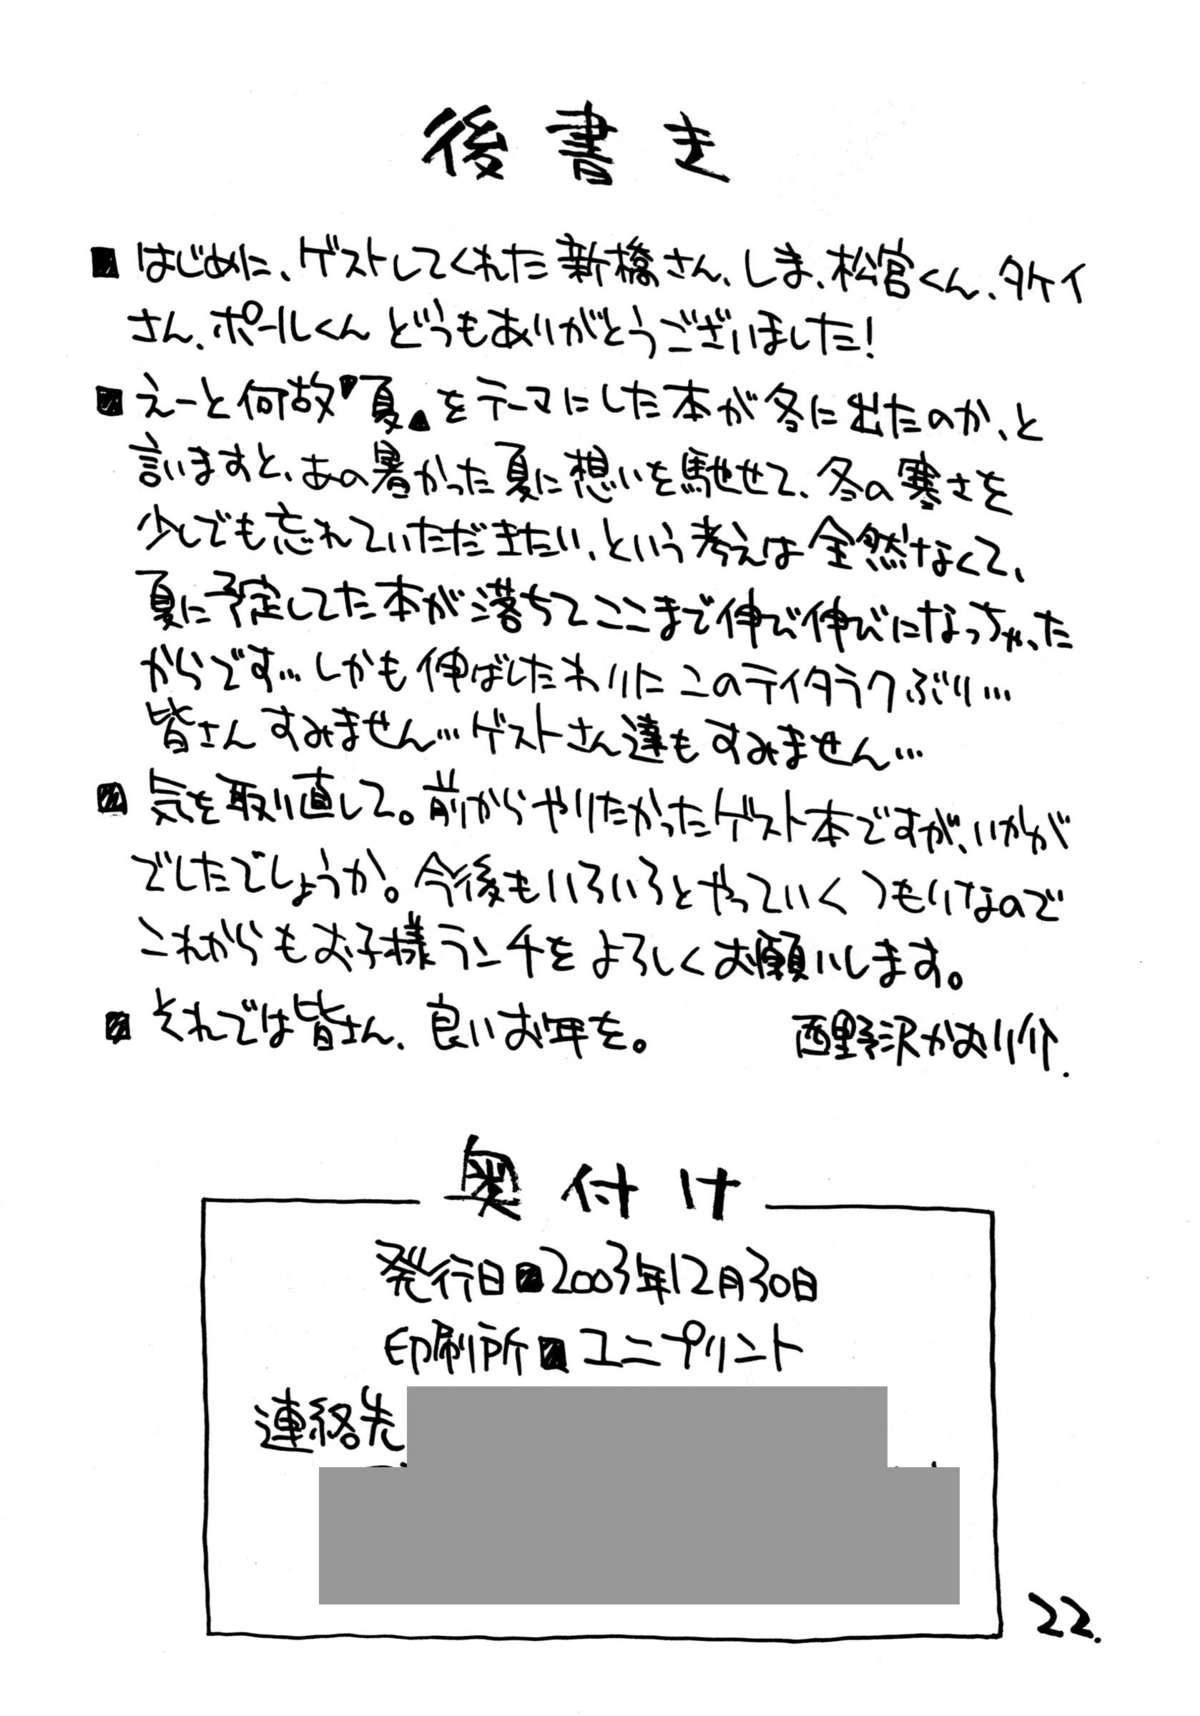 後書き
■ はじめに、ゲストしてくれた新橋さん、しま、松宮くん、タケイ
さん、ポールくん どうもありがとうございました!
■ えーと何故『夏』をテーマにした本が冬に出たのか、と
言いますと、あの暑かった夏に想いを馳せて、冬の寒さを
少しでも忘れていただきたい、という考えは全然なくて、
夏に予定してた本が落ちてここまで伸び伸びになっちゃった
からです… しかも伸ばしたわりにこのテイタラクぶり…
皆さんすみません… ゲストさん達もすみません…
■ 気を取り直して。前からやりたかったゲスト本ですが、いかが
でしたでしょうか。今後もいろいろとやっていくつもりなので
これからもお子様ランチをよろしくお願いします。
■ それでは皆さん、良いお年を。 西野沢かおり介.
奥付け
発行日■2003年12月30日
印刷所■ユニプリント
連絡先
22.